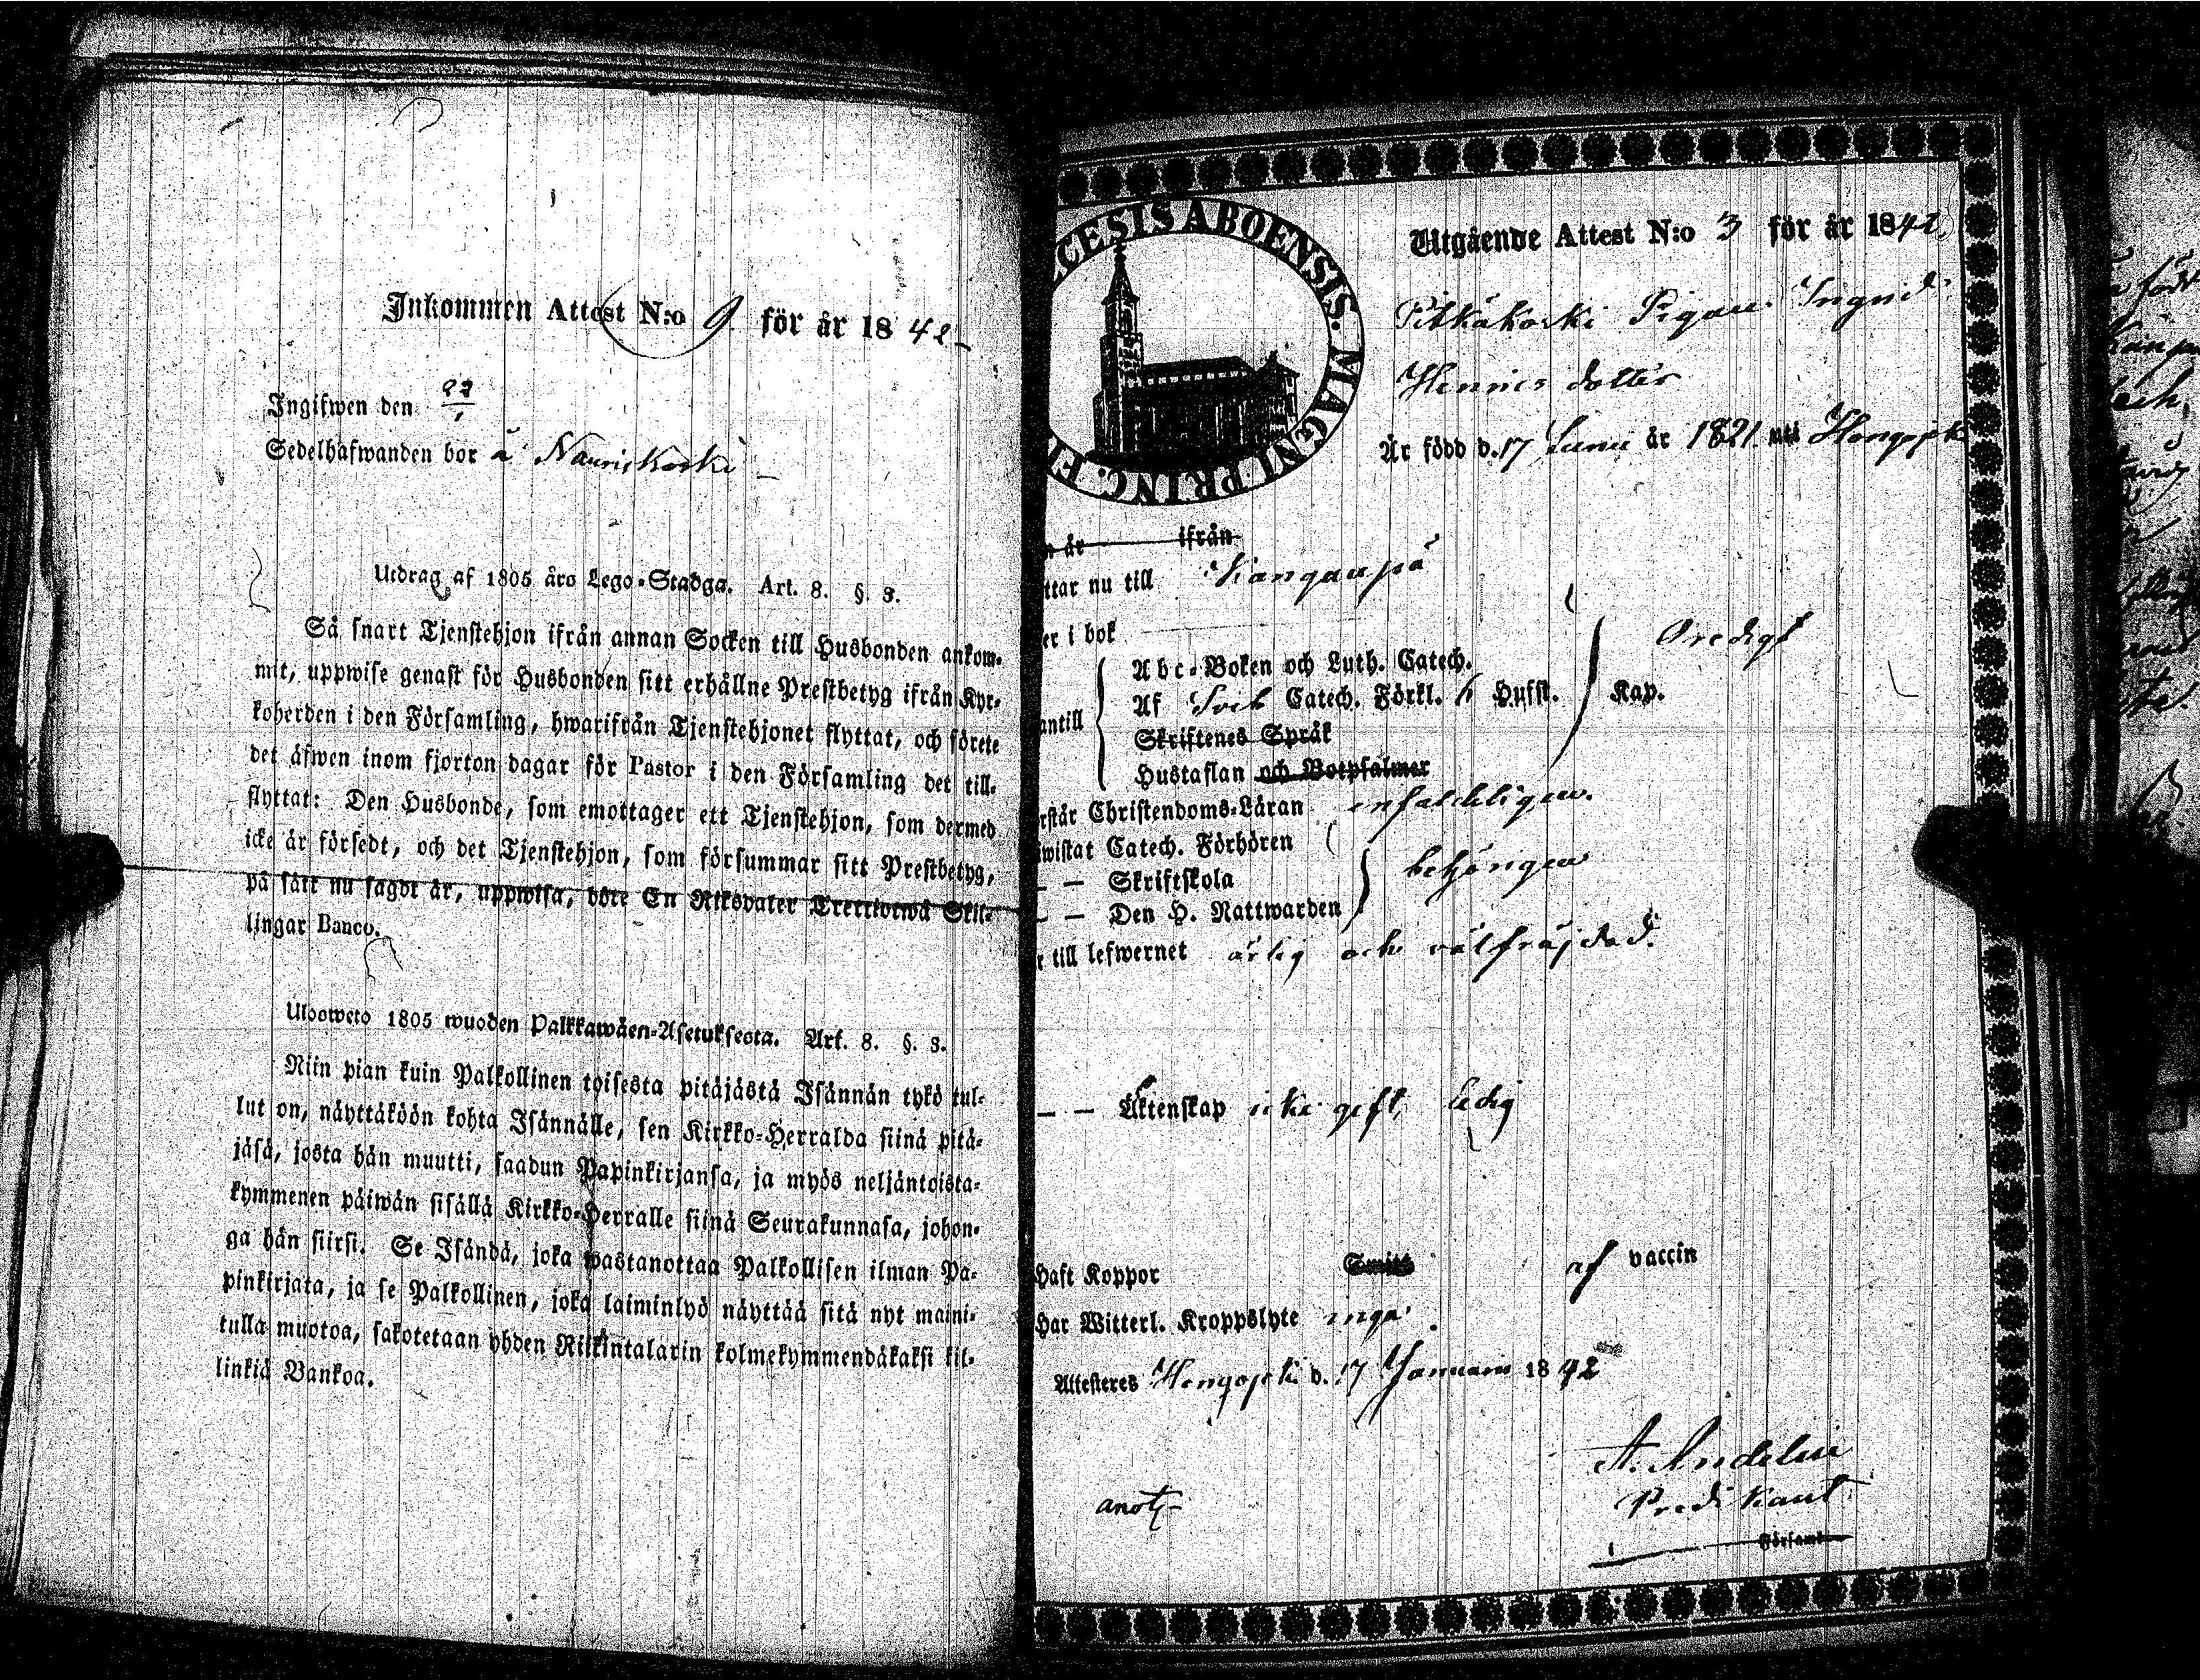 Inkommen Attest N:o 9 för år 1842
Ingifwen den 27/1
Sedelhafwanden bor å Nauriskoski
Utdrag af 1805 års Lego-Stadga. Art. 8. §. 3.
Så snart Tjenstehjon ifrån annan Socken till Husbonden ankom-
mit, uppwise genast för Husbonden sitt erhållne Prestbetyg ifrån Kyr-
koherden i den Församling, hwarifrån Tjenstehjonet flyttat, och förete
det äfwen inom fjorton dagar för Pastor i den Församling det till-
flyttat: Den Husbonde, som emottager ett Tjenstehjon, som dermed
icke är försedt, och det Tjenstehjon, som försummar sitt Prestbetyg,
på sätt nu sagdt är, uppwisa, böte En Riksdaler Trettiotwå Skil-
lingar Banco.
Ulosweto 1805 wuoden Palkkawäen-Asetuksesta. Art. 8. §. 3.
Niin pian kuin Palkollinen toisesta pitäjästä Isännän tykö tul-
lut on, näyttäköön kohta Isännälle, sen Kirkko-Herralda siinä pitä-
jäsä, josta hän muutti, saadun Papinkirjansa, ja myös neljäntoista-
kymmenen päiwän sisällä Kirkko-Herralle siinä Seurakunnasa, johon-
ga hän siirsi. Se Isändä, joka wastanottaa Palkollisen ilman Pa-
pinkirjata, ja se Palkollinen, joka laiminlyö näyttää sitä nyt maini-
tulla muotoa, sakotetaan yhden Riikintalarin kolmekymmendäkaksi kil-
linkiä Bankoa.
CESIS ABOENSIS. MAGNI PRINC. FI
Utgående Attest N:o 3 för år 1842
Pitkäkoski Pigan Ingrid
Henrics dotter
Är född d. 17 Junii år 1821 uti Hongojoki
n år ifrån
ttar nu till Kanganpä
er i bok
Abc-Boken och Luth. Catech.
Af Sveb Catech. Förkl. 6 Hufst. Kap.
antill
Skriftenes Språk
Hustaflan och Botpsalmer
rstår Christendoms-Läran enfaldeligen.
iwistat Catech. Förhören
— — Skriftskola behörigen
— — Den H. Nattwarden
r till lefwernet ärlig och välfräjdad.
— — Äktenskap icke gift, ledig
Haft Koppor af vaccin
Har Witterl. Kroppslyte inga
Attesteres Hongojoki d. 17 Januarii 1842
A. Andelin
Predikant
anot
Församl